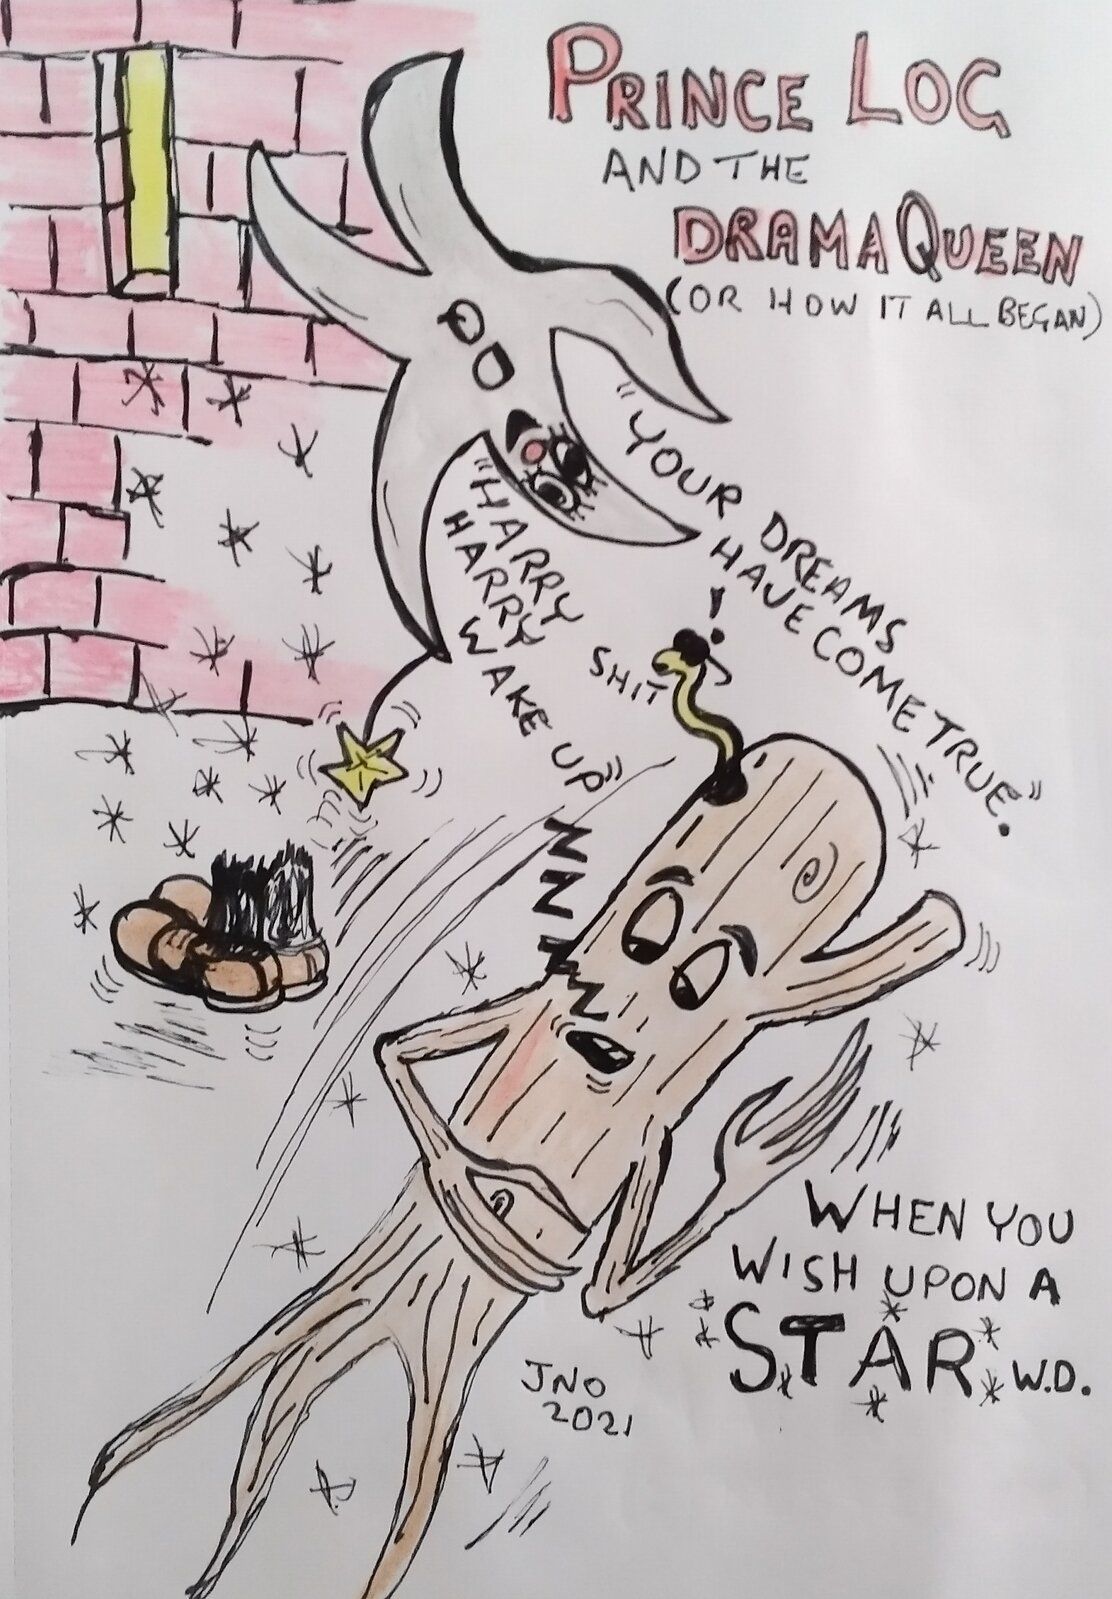 PRINCE LOG
AND THE
DRAMA QUEEN
(OR HOW IT ALL BEGAN)
"YOUR DREAMS
HAVE COME TRUE."
"HARRY
HARRY
WAKE UP"
SHIT!
ZZZZ
WHEN YOU
WISH UPON A
STAR W.D.
JNO
2021